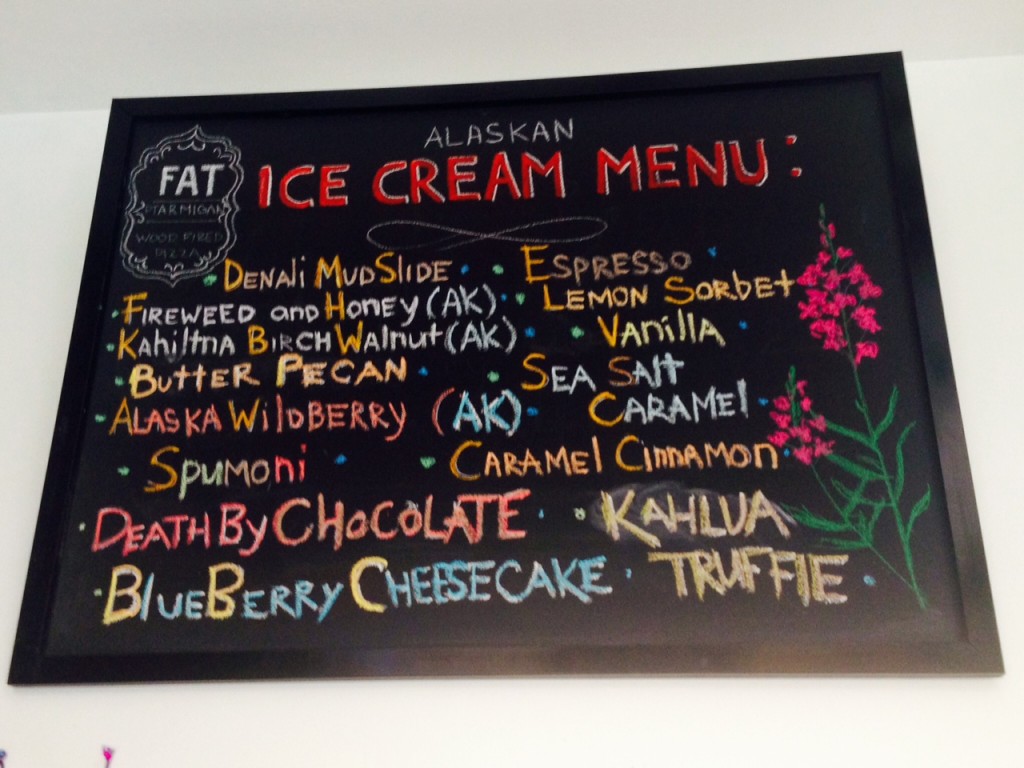 ALASKAN
FAT
PTARMIGAN
WOOD FIRED
PIZZA
ICE CREAM MENU:
• DENALI MUDSLIDE •
• FIREWEED AND HONEY (AK) •
• KAHILTNA BIRCH WALNUT (AK) •
• BUTTER PECAN •
• ALASKA WILDBERRY (AK) •
• SPUMONI •
• DEATH BY CHOCOLATE •
• BLUEBERRY CHEESECAKE •
• ESPRESSO •
• LEMON SORBET
• VANILLA •
• SEA SALT
CARAMEL •
• CARAMEL CINNAMON •
• KAHLUA
TRUFFLE •